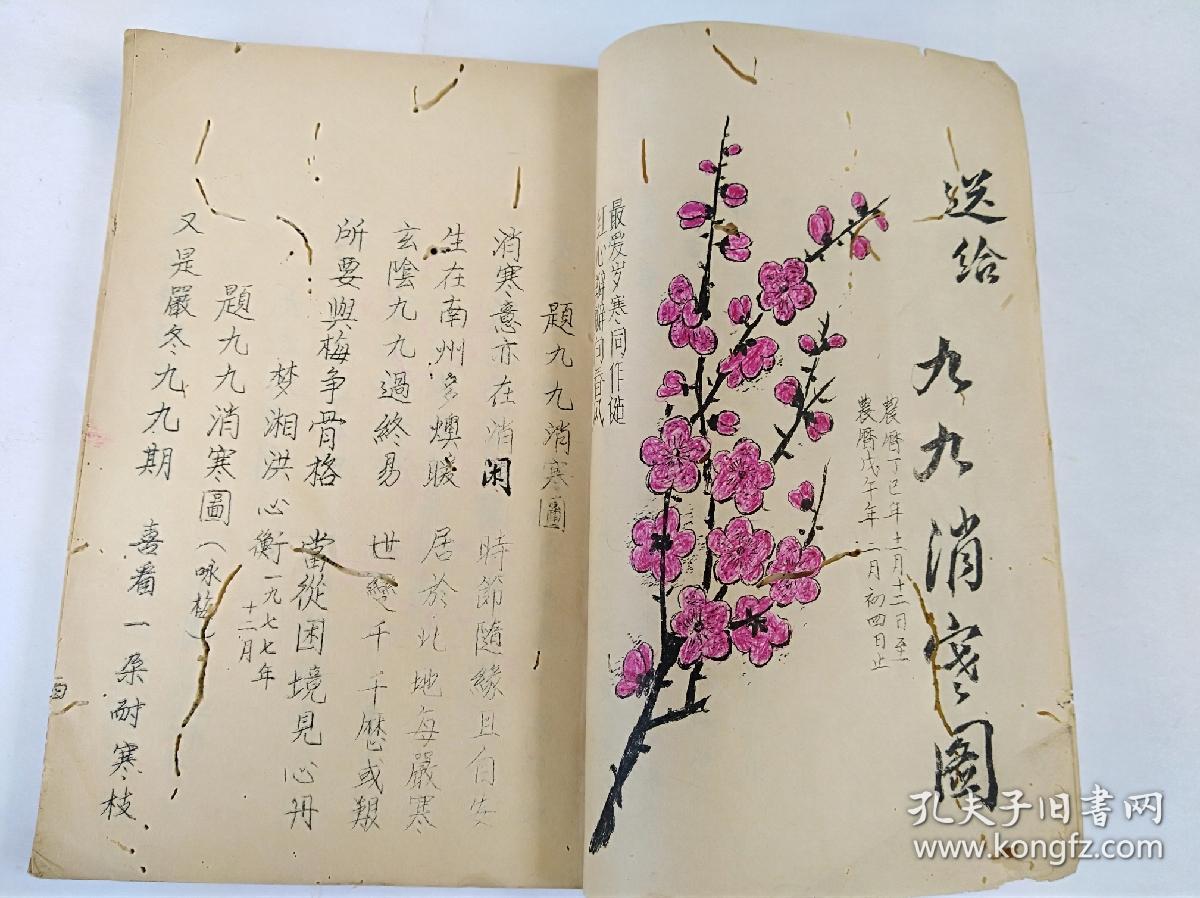 送给 九九消寒图
農曆丁巳年十一月十二日至
農曆戊午年二月初四日止
最爱岁寒同作
红心 向春风
題九九消寒圖
消寒意亦在消闲 時節隨緣且自安
生在南州多燠暖 居於北地每嚴寒
玄陰九九過終易 世變千千歷或艱
所要與梅争骨格 當從困境見心丹
梦湘洪心衡一九七七年
十二月
題九九消寒圖（咏梅）
又是嚴冬九九期 喜看一朵耐寒枝
孔夫子旧書网
www.kongfz.com